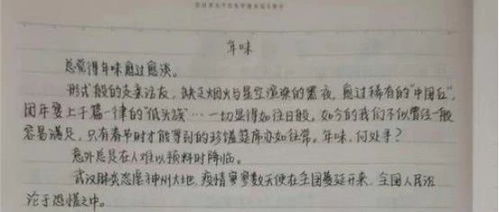 年味
总觉得年味愈过愈淡。
形式般的走亲访友，缺乏烟火与星空渲染的黑夜，愈过稀有的“中国红”，
团年宴上千篇一律的“低头族”…一切显得如往日般。如今的我们不似曾经一般
容易满足，只有春节时才能等到的珍馐筵席亦如往常。年味，何处寻？
意外总是在人难以预料时降临。
武汉肺炎席卷神州大地，疫情寥寥数天便在全国蔓延开来，全国人民沉
沦于恐慌之中。